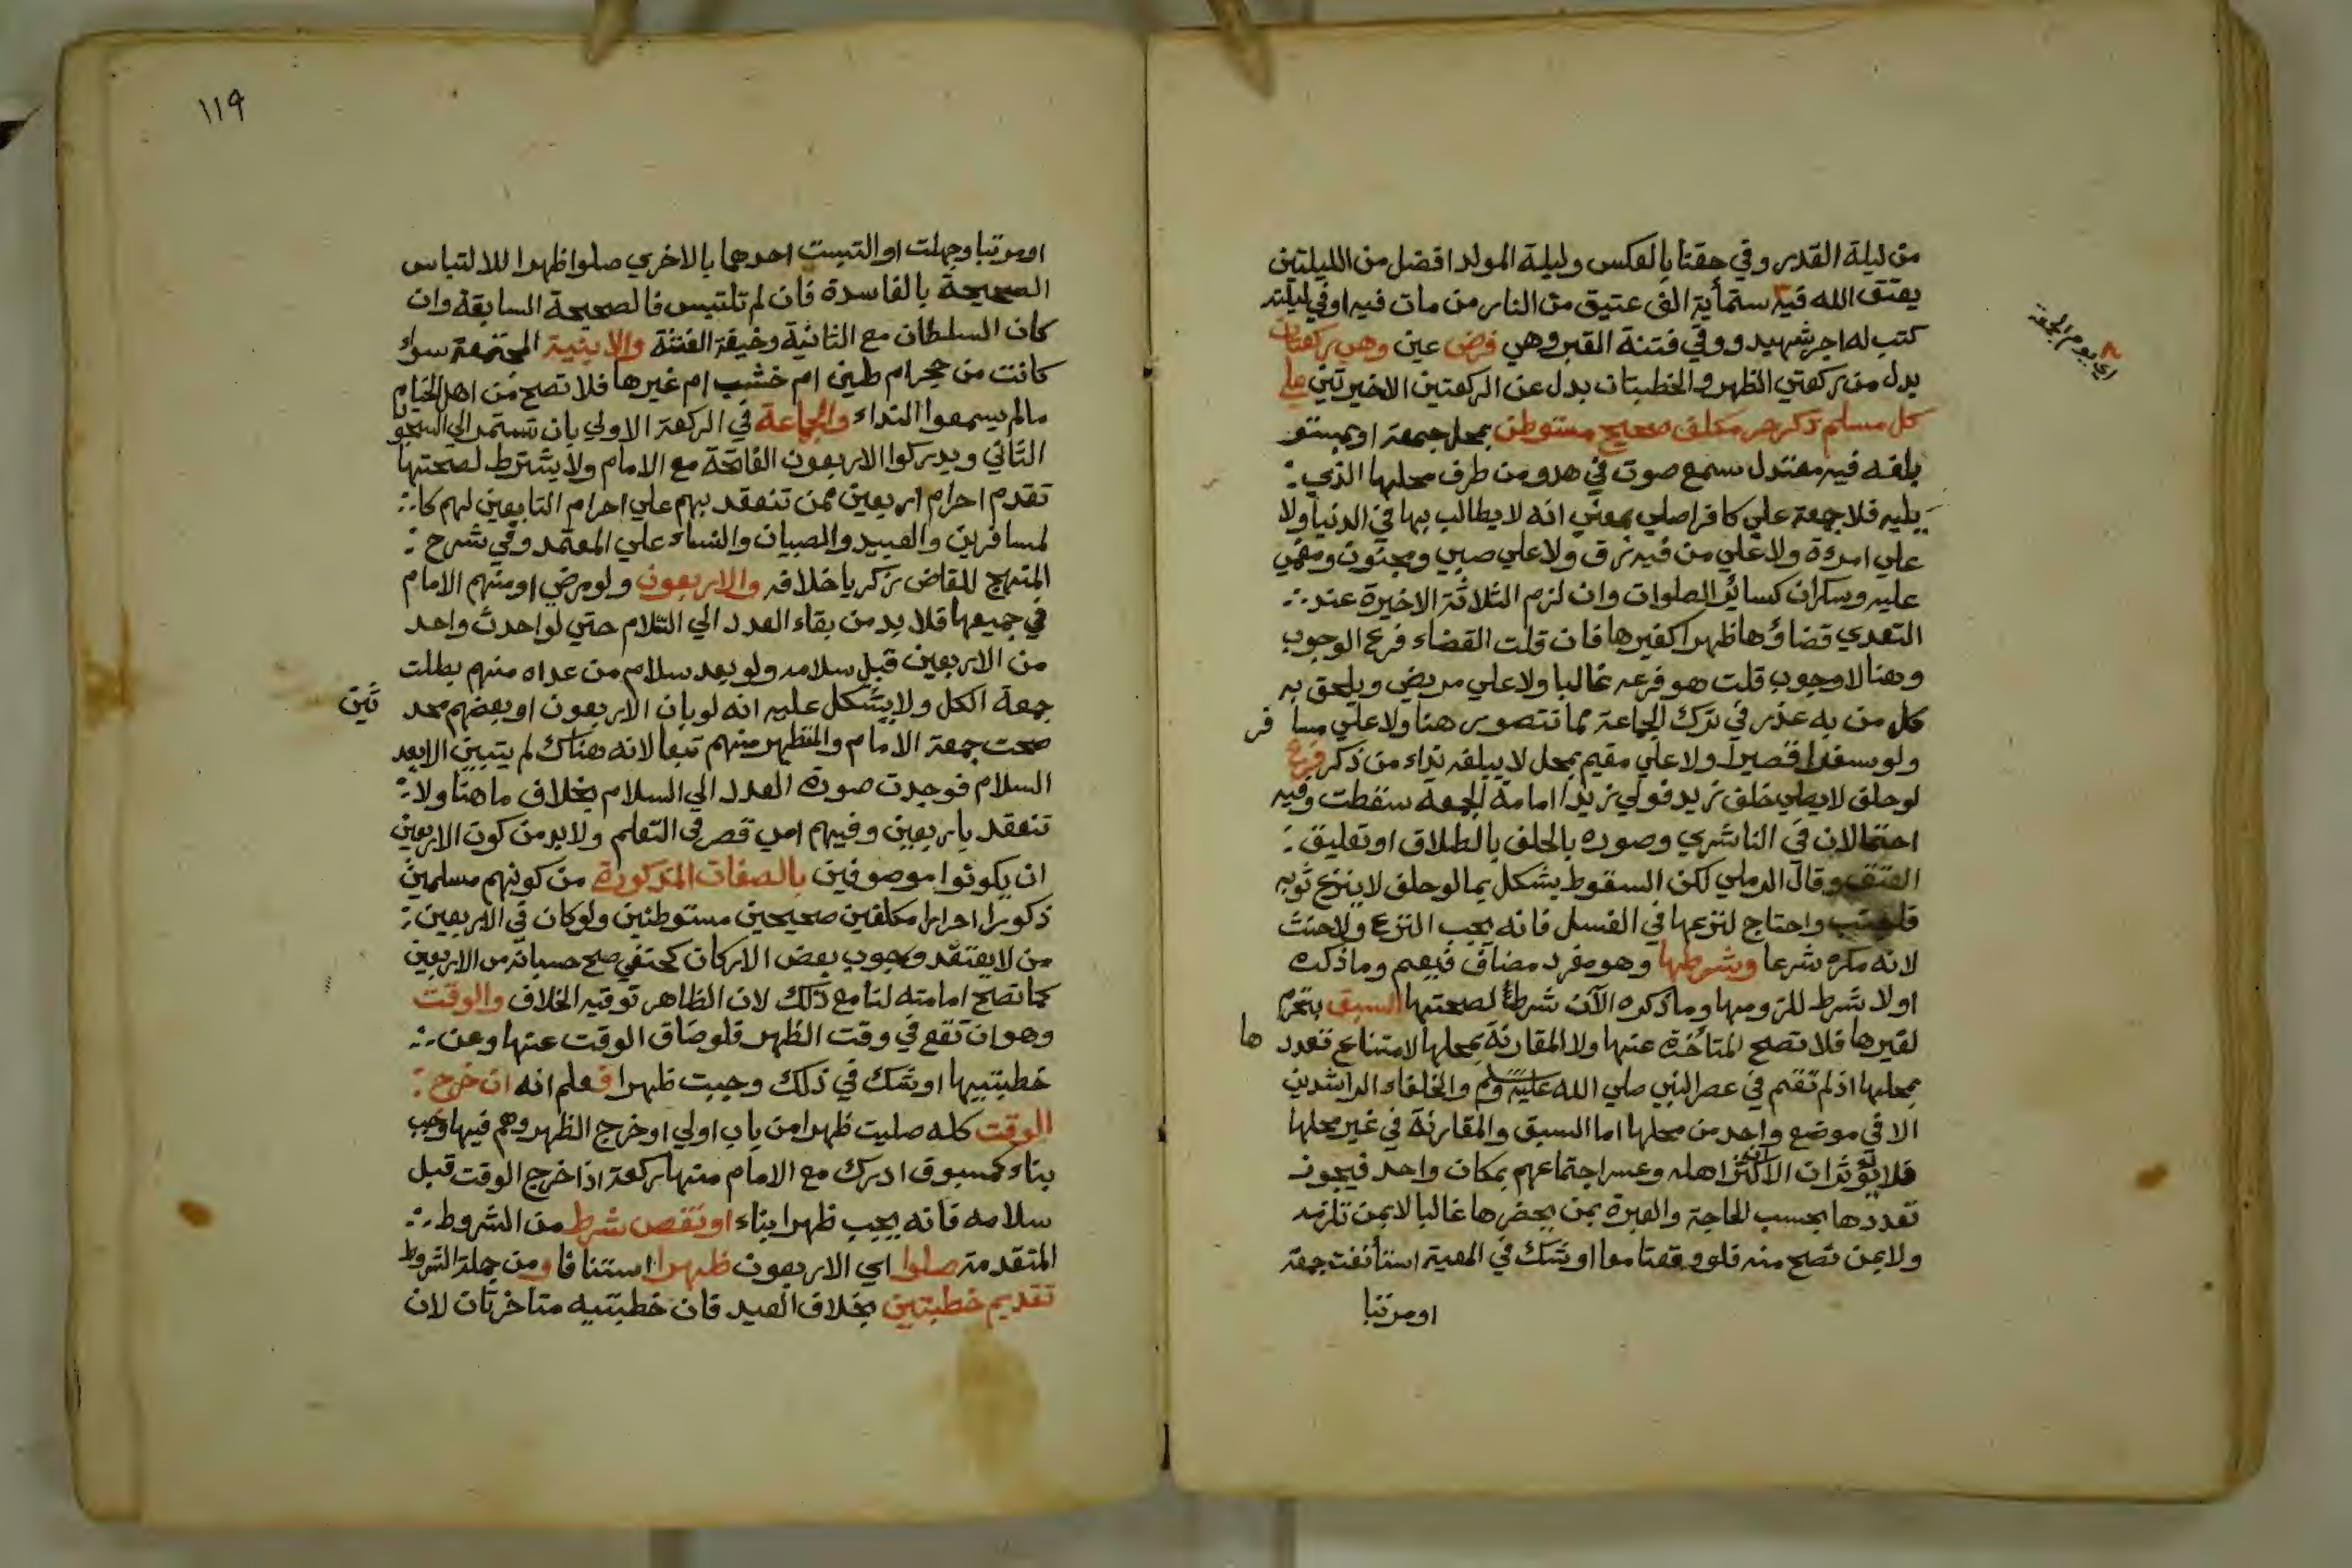 من ليلة القدر وفي حقنا بالعكس وليلة المولد افضل من الليلتين
يعتق الله فيه ستمأية الف عتيق من النار من مات فيه او في ليلته
اي يوم الجمعة
كتب له اجر شهيد ووقي فتنة القبر وهي فرض عين وهي ركعتان
بدل من ركعتي الظهر والخطبتان بدل عن الركعتين الاخيرتين علي
كل مسلم ذكر حر مكلف صحيح مستوطن بمحل جمعة او بمستو
بلغه فيه معتدل سمع صوت في هدو من طرف محلها الذي
يليه فلا جمعة علي كافر اصلي بمعني انه لا يطالب بها في الدنيا ولا
علي امرءة ولا علي من فيه رق ولا علي صبي ومجنون ومغمي
عليه وسكران كسائر الصلوات وان لزم الثلاثة الاخيرة عند
التعدي قضاؤها ظهرا كغيرها فان قلت القضاء فرع الوجوب
وهنا لا وجوب قلت هو فرعه غالبا ولا علي مريض ويلحق به
كل من به عذر في ترك الجماعة مما تتصور هنا ولا علي مسا فر
ولو سفرا قصيرا ولا علي مقيم بمحل لا يبلغه نداء من ذكر فرع
لو حلف لا يصلي خلف زيد فولي زيدا امامة الجمعة سقطت وفيه
احتمالان في الناشري وصوره بالحلف بالطلاق او تعليق
العتق وقال الرملي لكن السقوط يشكل بما لو حلف لا ينزع ثوبه
فاجنب واحتاج لنزعها في الغسل فانه يجب النزع ولا حنث
لانه مكره شرعا وشرطها وهو مفرد مضاف فيعم وما ذكره
اولا شرط للزومها وما ذكره الآن شرط لصحتها السبق بتحرم
ها
لغيرها فلا تصح المتأخرة عنها ولا المقارنة بمحلها لامتناع تعدد
بمحلها اذ لم تقم في عصر النبي صلي الله عليه وسلم والخلفاء الراشدين
الا في موضع واحد من محلها اما السبق والمقارنة في غير محلها
فلا يؤثران الا ان كثر اهله وعسر اجتماعهم بمكان واحد فيجوز
تعددها بحسب الحاجة والعبرة بمن يحضرها غالبا لا بمن تلزمه
ولا بمن تصح منه فلو وقعتا معا او شك في المعية استأنفت جمعة
او مرتبا
١١٩
او مرتبا وجهلت او التبست احدهما بالاخري صلوا ظهرا للالتباس
الصحيحة بالفاسدة فان لم تلتبس فالصحيحة السابقة وان
كان السلطان مع الثانية وخيفة الفتنة والابنية المجتمعة سواء
كانت من حجر ام طين ام خشب ام غيرها فلا تصح من اهل الخيام
مالم يسمعوا النداء والجماعة في الركعة الاولي بان تستمر الي السجو
الثاني ويدركوا الاربعون الفاتحة مع الامام ولا يشترط لصحتها
تقدم احرام اربعين ممن تنعقد بهم علي احرام التابعين لهم كا
لمسافرين والعبيد والصبيان والنساء علي المعتمد وفي شرح
المنهج للقاض زكريا خلافه والاربعون ولو مرضي او منهم الامام
في جميعها فلا بد من بقاء العدد الي السلام حتي لو احدث واحد
من الاربعين قبل سلامه ولو بعد سلام من عداه منهم بطلت
جمعة الكل ولا يشكل عليه انه لو بان الاربعون او بعضهم محد ثين
صحت جمعة الامام والمتطهر منهم تبعا لانه هناك لم يتبين الا بعد
السلام فوجدت صورة العدد الي السلام بخلاف ما هنا ولا
تنعقد باربعين وفيهم امي قصر في التعلم ولا بد من كون الاربعين
ان يكونوا موصوفين بالصفات المذكورة من كونهم مسلمين
ذكورا احرارا مكلفين صحيحين مستوطنين ولو كان في الاربعين
من لا يعتقد وجوب بعض الاركان كحنفي صح حسبانه من الاربعين
كما تصح امامته لنا مع ذلك لان الظاهر توقيه الخلاف والوقت
وهو ان تقع في وقت الظهر فلو ضاق الوقت عنها وعن
خطبتيها او شك في ذلك وجبت ظهرا فعلم انه ان خرج
الوقت كله صليت ظهرا من باب اولي او خرج الظهر وهم فيها وجب
بناء كمسبوق ادرك مع الامام منها ركعة اذا خرج الوقت قبل
سلامه فانه يجب ظهرا بناء او نقص شرط من الشروط
المتقدمة صلوا اي الاربعون ظهرا استئنافا ومن جملة الشروط
تقديم خطبتين بخلاف العيد فان خطبتيه متاخرتان لان